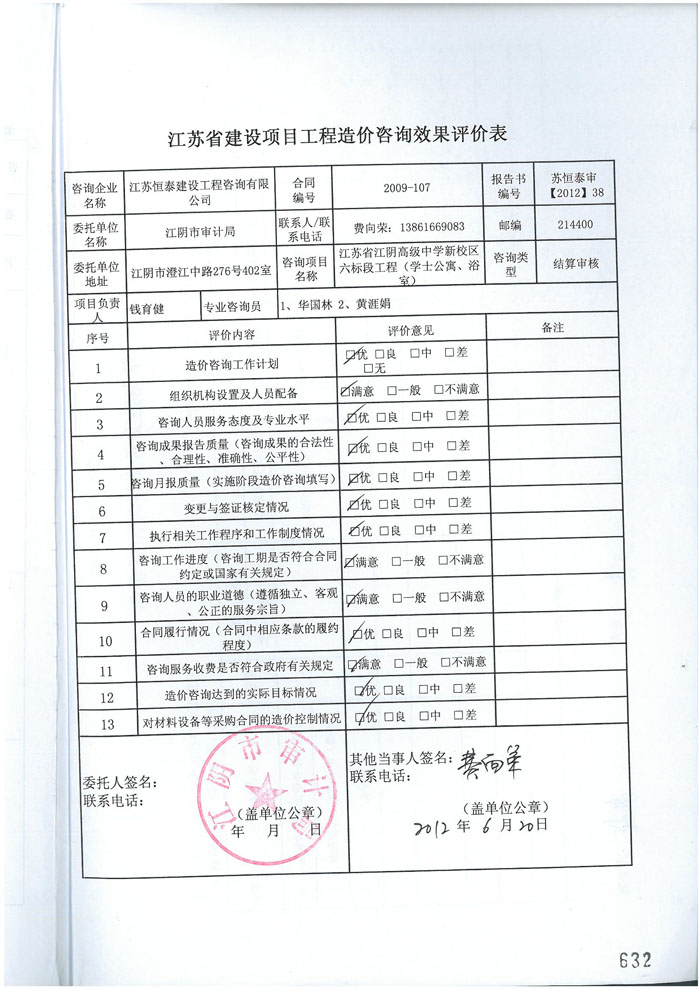 江苏省建设项目工程造价咨询效果评价表
咨询企业名称 江苏恒泰建设工程咨询有限公司 合同编号 2009-107 报告书编号 苏恒泰审【2012】38
委托单位名称 江阴市审计局 联系人/联系电话 费向荣：13861669083 邮编 214400
委托单位地址 江阴市澄江中路276号402室 咨询项目名称 江苏省江阴高级中学新校区六标段工程（学士公寓、浴室） 咨询类型 结算审核
项目负责人 钱育健 专业咨询员 1、华国林 2、黄涯娟
序号 评价内容 评价意见 备注
1 造价咨询工作计划 □优 □良 □中 □差 □无
2 组织机构设置及人员配备 □满意 □一般 □不满意
3 咨询人员服务态度及专业水平 □优 □良 □中 □差
4 咨询成果报告质量（咨询成果的合法性、合理性、准确性、公平性） □优 □良 □中 □差
5 咨询月报质量（实施阶段造价咨询填写） □优 □良 □中 □差
6 变更与签证核定情况 □优 □良 □中 □差
7 执行相关工作程序和工作制度情况 □优 □良 □中 □差
8 咨询工作进度（咨询工期是否符合合同约定或国家有关规定） □满意 □一般 □不满意
9 咨询人员的职业道德（遵循独立、客观、公正的服务宗旨） □满意 □一般 □不满意
10 合同履行情况（合同中相应条款的履约程度） □优 □良 □中 □差
11 咨询服务收费是否符合政府有关规定 □满意 □一般 □不满意
12 造价咨询达到的实际目标情况 □优 □良 □中 □差
13 对材料设备等采购合同的造价控制情况 □优 □良 □中 □差
委托人签名：
联系电话：
（盖单位公章）
年 月 日
江阴市审计局
其他当事人签名：
联系电话：
（盖单位公章）
2012 年 6 月 20 日
632